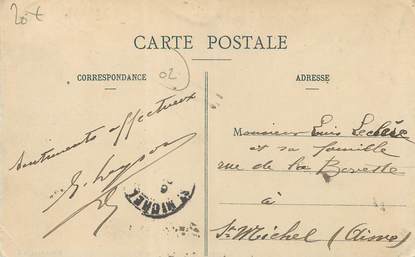 20€
CARTE POSTALE
CORRESPONDANCE
02
ADRESSE
Sentiments affectueux
Monsieur Louis Leclère
et sa famille
rue de la
à
St Michel (Aisne)
ST MICHEL